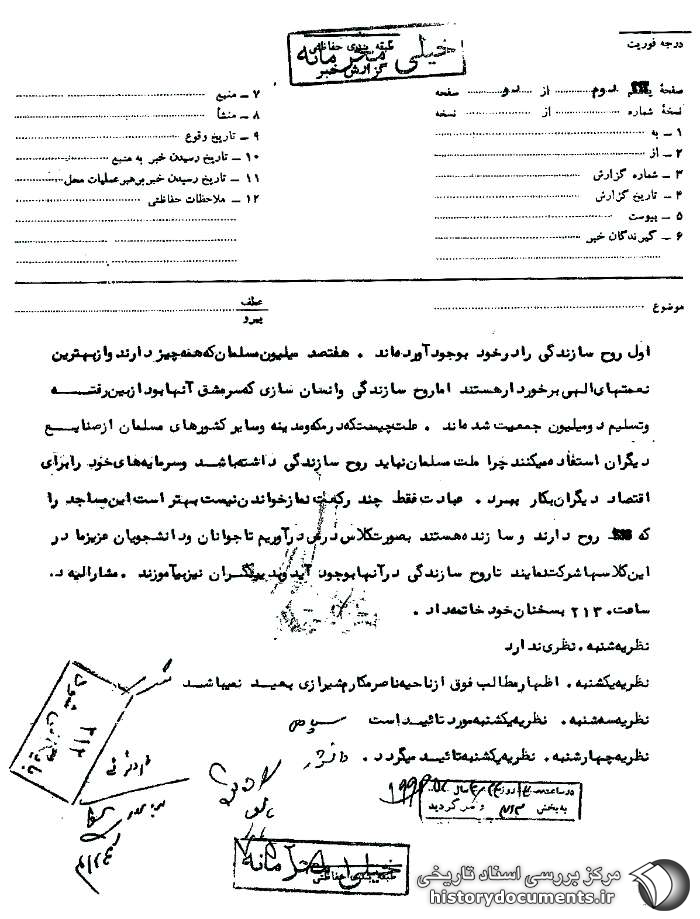 خیلی محرمانه
طبقه بندی حفاظتی
گزارش خبر
درجه فوریت
صفحهٔ دوم از دو صفحه
نسخهٔ شماره از نسخه
۱ ـ به
۲ ـ از
۳ ـ شماره گزارش
۴ ـ تاریخ گزارش
۵ ـ پیوست
۶ ـ گیرندگان خبر
۷ ـ منبع
۸ ـ منشأ
۹ ـ تاریخ وقوع
۱۰ ـ تاریخ رسیدن خبر به منبع
۱۱ ـ تاریخ رسیدن خبر برهبر عملیات محل
۱۲ ـ ملاحظات حفاظتی
موضوع
عطف
پیرو
اول روح سازندگی را در خود بوجود آورده‌اند . هفتصد میلیون مسلمان که همه چیز دارند و از بهترین
نعمتهای الهی برخوردار هستند اما روح سازندگی و انسان سازی که سر مشق آنها بود از بین رفتــه
و تسلیم دو میلیون جمعیت شده‌اند . علت چیست که در مکه و مدینه و سایر کشورهای مسلمان از صنایع
دیگران استفاده میکنند چرا ملت مسلمان نباید روح سازندگی داشته باشد و سرمایه‌های خود را برای
اقتصاد دیگران بکار ببرد . عبادت فقط چند رکعت نماز خواندن نیست بهتر است این مساجد را
که روح دارند و سازنده هستند بصورت کلاس درس در آوریم تا جوانان و دانشجویان عزیز ما در
این کلاسها شرکت نمایند تا روح سازندگی در آنها بوجود آید و بدیگران نیز بیآموزند . مشارالیه د.
ساعت ۲۱۳۰ بسخنان خود خاتمه داد .
نظریه شنبه . نظری ندارد
نظریه یکشنبه . اظهار مطالب فوق از ناحیه ناصر مکارم شیرازی بعید نمیباشد
نظریه سه‌شنبه . نظریه یکشنبه مورد تائید است
نظریه چهارشنبه . نظریه یکشنبه تائید میگردد .
خیلی محرمانه
طبقه بندی حفاظتی
مرکز بررسی اسناد تاریخی
historydocuments.ir